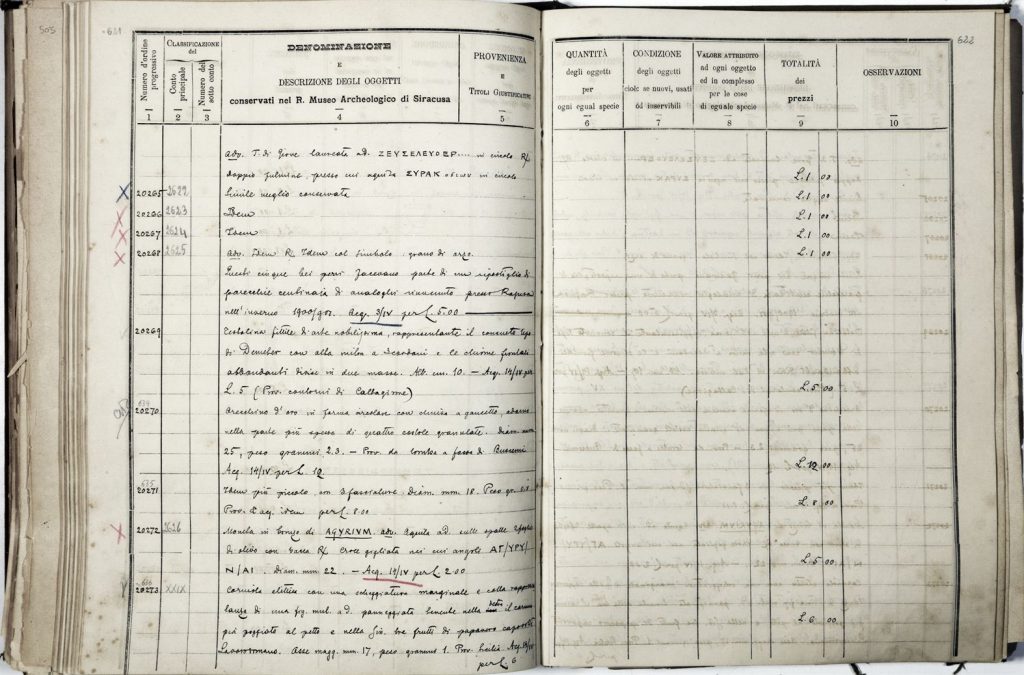 505
621
Numero d'ordine progressivo
CLASSIFICAZIONE del
Conto principale
Numero del sotto conto
DENOMINAZIONE
E
DESCRIZIONE DEGLI OGGETTI
conservati nel R. Museo Archeologico di Siracusa
PROVENIENZA
E
TITOLI GIUSTIFICATIVI
1 2 3 4 5
adv. T. di Giove laureata ad. ΖΕΥΣΕΛΕΥΘΕΡ.... in circolo R/
doppio fulmine, presso cui aquila ΣΥΡΑΚ in circolo
20265 2622 Simile meglio conservata
20266 2623 Idem
20267 2624 Idem
20268 2625 adv. Idem R/ Idem col simbolo: grano di orzo.
Questi cinque bei pezzi facevano parte di un ripostiglio di
parecchie centinaia di analoghi rinvenuto presso Ragusa
nell'inverno 1900/901. Acq. 3/IV per L. 5.00
20269 Testolina fittile d'arte nobilissima, rappresentante il consueto tipo
di Demeter con alta mitra a e le chiome frontali
abbondanti divise in due masse. Alt. cm. 10. — Acq. 14/IV per
L. 5 (Prov. contorni di Caltagirone)
634
20270 Orecchino d'oro in forma circolare con chiusa a gancetto, adorno
nella parte più spessa di quattro costole granulate. Diam. mm
25, peso grammi 2.3. — Prov. da tomba a fossa di Buscemi
Acq. 14/IV per L. 12
635
20271 Idem più piccolo con Diam. mm. 18. Peso gr.
Prov. e acq. idem per L. 8.00
20272 2626 Moneta in bronzo di AGYRIVM. adv. Aquila ad. sulle spalle
di olivo con R/ Croce gigliata nei cui angoli ΑΓ/ΥΡΥ/
Ν/ΑΙ. Diam. mm 22. — Acq. 14/IV per L 2.00
636
20273 XXIX Corniola elittica con una scheggiatura marginale e colla rappresen
tanza di una fig. mul. ad. panneggiata tenente nella destra il
poggiato al petto e nella sin. tre frutti di papavero
Lavoro romano. Asse magg. mm. 17, peso grammi 1. Prov. Sicilia. Acq.
per L. 6
622
QUANTITÀ
degli oggetti
per
ogni egual specie
CONDIZIONE
degli oggetti
cioè: se nuovi, usati
od inservibili
VALORE ATTRIBUITO
ad ogni oggetto
ed in complesso
per le cose
di eguale specie
TOTALITÀ
dei
prezzi
OSSERVAZIONI
6 7 8 9 10
L. 1 00
L. 1 00
L. 1 00
L. 1 00
L. 1 00
L. 5 00
L. 12 00
L. 8 00
L. 5 00
L. 6 00